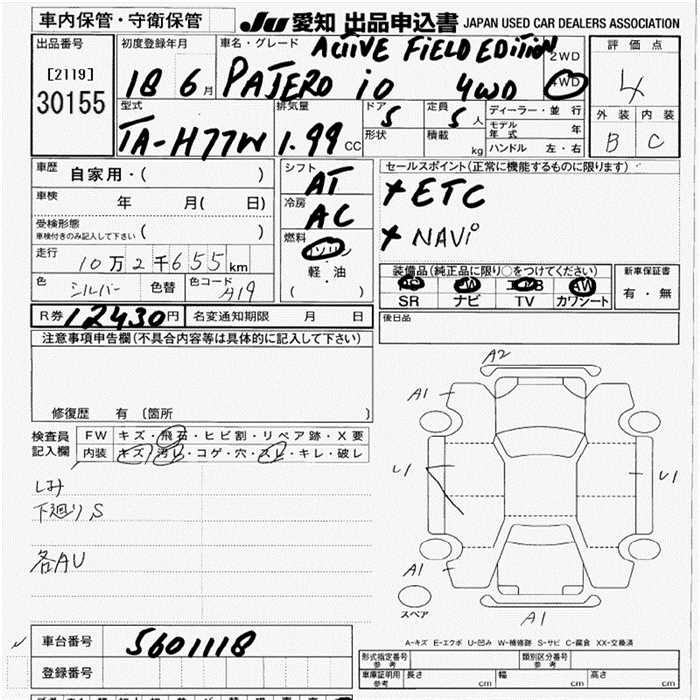 車内保管・守衛保管
JU 愛知 出品申込書 JAPAN USED CAR DEALERS ASSOCIATION
出品番号 初度登録年月 車名・グレード ACTIVE FIELD EDITION 2WD 評価点
[2119] 18 6月 PAJERO io 4WD 4WD 4
30155
型式 排気量 ドア 5 定員 5人 ディーラー・並行 外装 内装
TA-H77W 1.99CC 形状 積載 kg モデル年式 年 B C
ハンドル 左・右
車歴 自家用・( ) シフト AT セールスポイント(正常に機能するものに限ります)
車検 年 月( 日) 冷房 AC +ETC
受検形態 車検付きのみ記入して下さい ( ) 燃料 +NAVi
走行 10万2千655km 軽・油
色 シルバー 色替 色コード A19 ( ) 装備品(純正品に限り○をつけてください) 新車保証書
PS PW エアB AW 有・無
SR ナビ TV カワシート
R券 12430円 名変通知期限 月 日 後日品
注意事項申告欄(不具合内容等は具体的に記入して下さい)
修復歴 有 (箇所 )
検査員記入欄 FW キズ・飛石・ヒビ割・リペア跡・X要
内装 キズ・汚レ・コゲ・穴・スレ・キレ・破レ
しみ
下廻りS
各AU
A2
A1
U1 U1
A1
スペア A1
A-キズ E-エクボ U-凹み W-補修跡 S-サビ C-腐食 XX-交換済
車台番号 5601118
登録番号
形式指定番号 参考 類別区分番号 参考
車庫証明用 参考 長さ cm 幅 cm 高さ cm